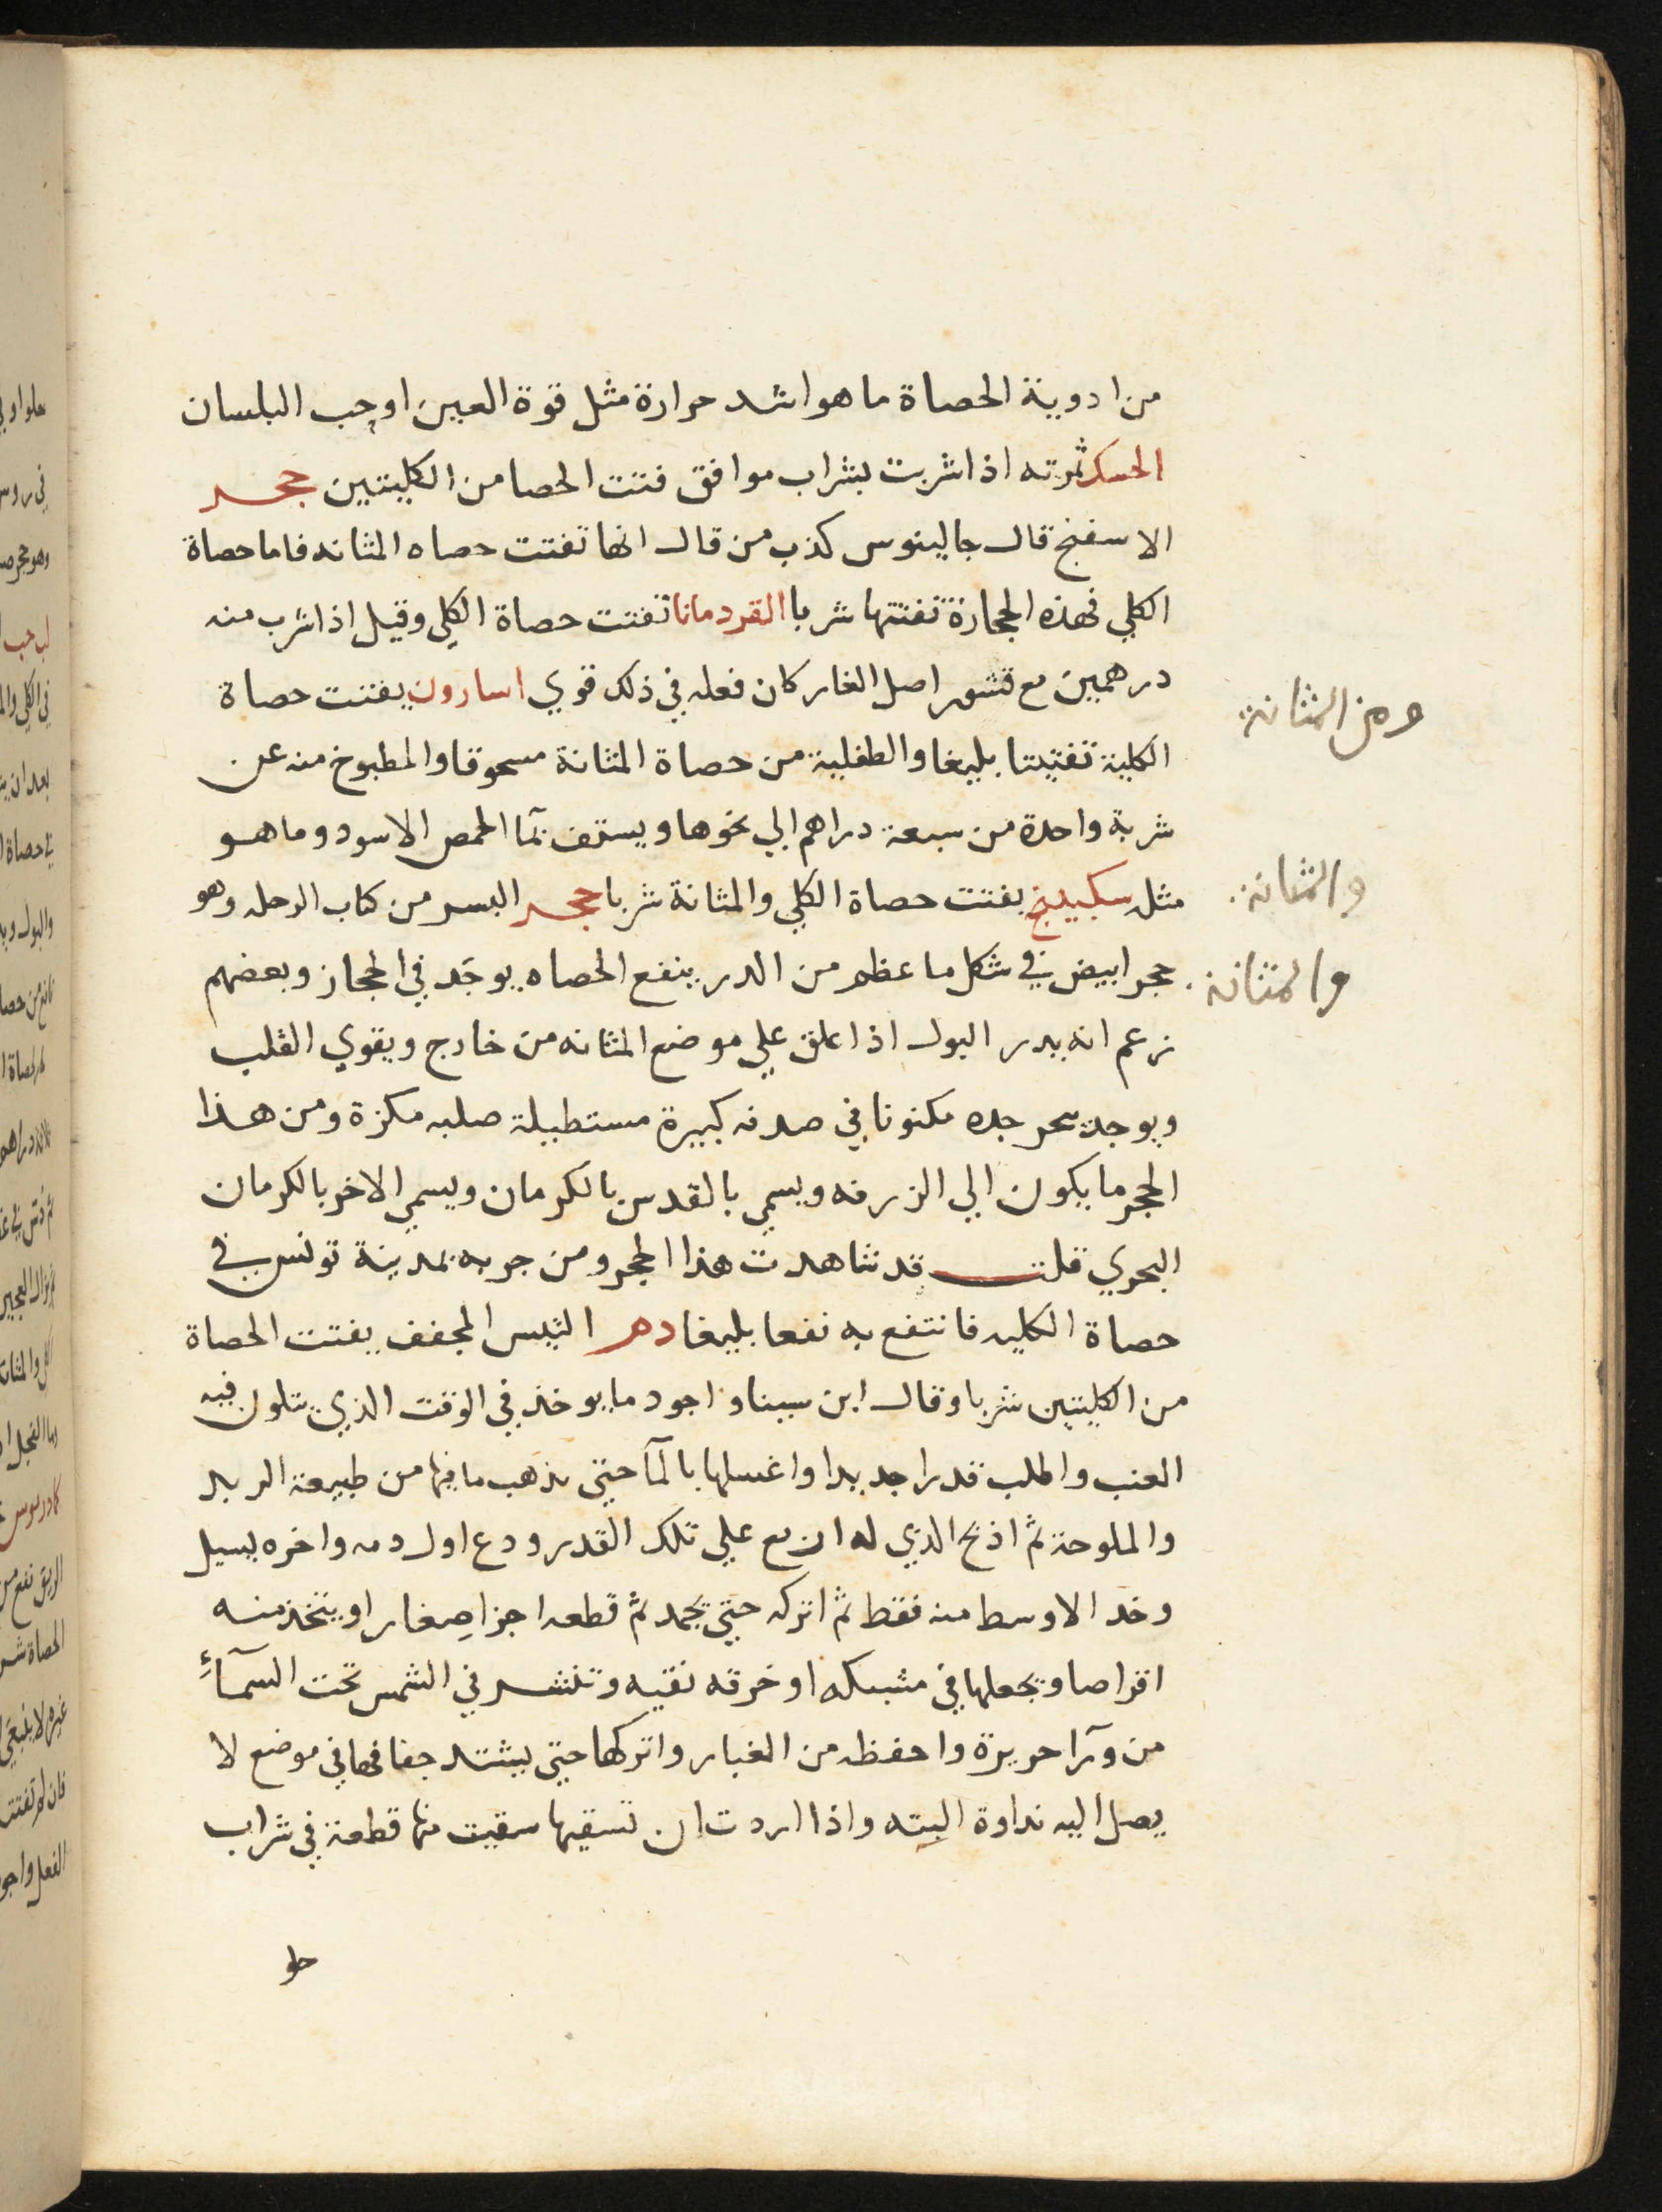 من ادوية الحصاة ما هو اشد حرارة مثل قوة العين اوحب البلسان
الحسك ثمرته اذا شربت بشراب موافق فتت الحصا من الكليتين حجر
الاسفنج قال جالينوس كذب من قال انها تفتت حصاه المثانه فاما حصاة
الكلي فهذه الحجارة تفتتها شربا القردمانا تفتت حصاة الكلي وقيل اذا شرب منه
درهمين مع قشور اصل الغار كان فعله في ذلك قوي اسارون يفتت حصاة
ومن المثانة
الكلية تفتيتا بليغا والطفلية من حصاة المثانة مسحوقا والمطبوخ منه عن
شربة واحدة من سبعة دراهم الي نحوها ويستف بمآ الحمص الاسود وما هو
والمثانة
مثل سكبينج يفتت حصاة الكلي والمثانة شربا حجر البسر من كتاب الرحله وهو
والمثانة
حجر ابيض في شكل ما عظم من الدر ينفع الحصاه يوجد في الحجاز وبعضهم
زعم انه يدر البول اذا علق علي موضع المثانه من خارج ويقوي القلب
ويوجد ببحر جده مكنونا في صدفه كبيرة مستطيلة صلبه مكزة ومن هذا
الحجر ما يكون الي الزرقه ويسمي بالقدس بالكرمان ويسمي الاخر بالكرمان
البحري قلت قد شاهدت هذا الحجر ومن جربه بمدينة تونس في
حصاة الكليه فانتفع به نفعا بليغا دم التيس المجفف يفتت الحصاة
من الكليتين شربا وقال ابن سينا و اجود ما يوخذ في الوقت الذي يتلون فيه
العنب واطلب قدرا جديدا واغسلها بالمآ حتي يذهب ما فيها من طبيعة
والملوحة ثم اذبح الذي له علي تلك القدر ودع اول دمه واخره يسيل
وخد الاوسط منه فقط ثم اتركه حتي يجمد ثم قطعه اجزا صغار او يتخذ منه
اقراصا ويجعلها في مشبكه او خرقه نقيه وتنشر في الشمس تحت السمآء
من ورآ حريرة واحفظه من الغبار واتركها حتي يشتد جفافها في موضع لا
يصل اليه نداوة البته واذا اردت ان تسقيها سقيت منها قطعة في شراب
حلو